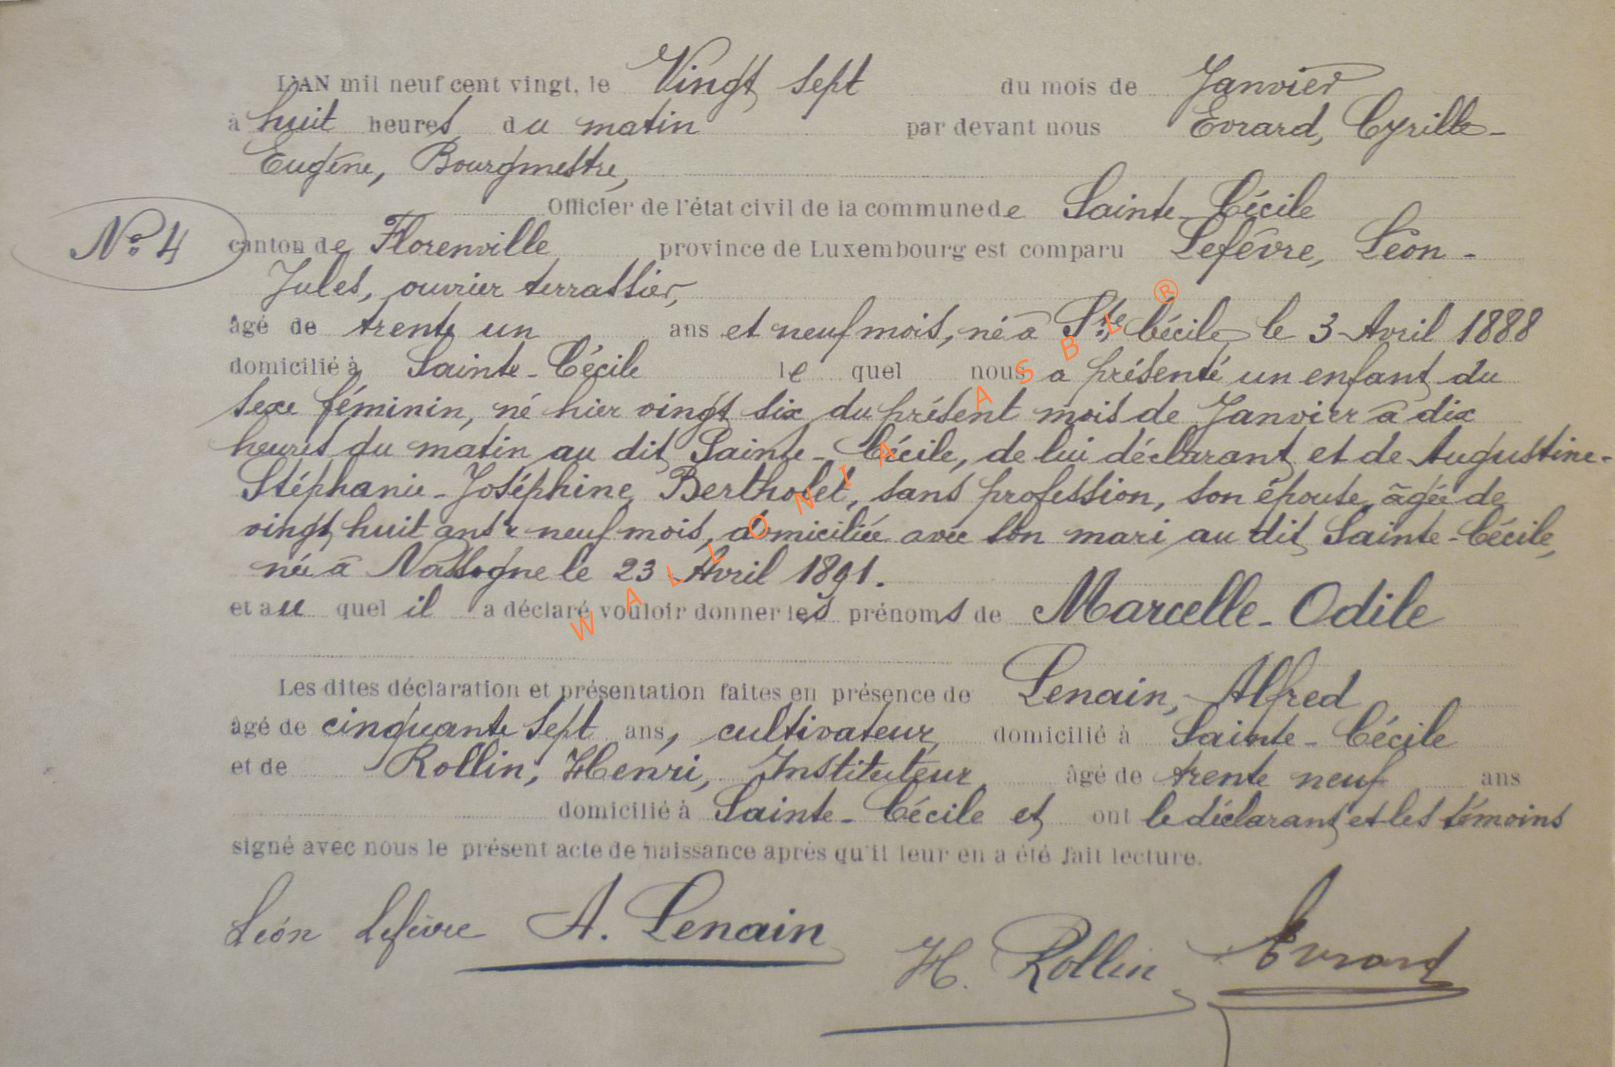 L'AN mil neuf cent vingt, le Vingt sept du mois de Janvier
à huit heures du matin par devant nous Evrard, Cyrille-
Eugène, Bourgmestre,
Officier de l'état civil de la commune de Sainte-Cécile
N° 4
canton de Florenville province de Luxembourg est comparu Lefèvre, Léon-
Jules, ouvrier terrassier,
âgé de trente un ans et neuf mois, né à Ste Cécile le 3 Avril 1888
domicilié à Sainte-Cécile le quel nous a présenté un enfant du
sexe féminin, né hier vingt six du présent mois de Janvier à dix
heures du matin au dit Sainte-Cécile, de lui déclarant et de Augustine-
Stéphanie-Joséphine Bertholet, sans profession, son épouse, âgée de
vingt huit ans & neuf mois, domiciliée avec son mari au dit Sainte-Cécile,
née à Nassogne le 23 Avril 1891.
et au quel il a déclaré vouloir donner les prénoms de Marcelle-Odile
Les dites déclaration et présentation faites en présence de Lenain, Alfred
âgé de cinquante sept ans, cultivateur domicilié à Sainte-Cécile
et de Rollin, Henri, Instituteur âgé de trente neuf ans
domicilié à Sainte-Cécile et ont le déclarant et les témoins
signé avec nous le présent acte de naissance après qu'il leur en a été fait lecture.
Léon Lefèvre A. Lenain
H. Rollin Evrard
WALLONIA ASBL ®